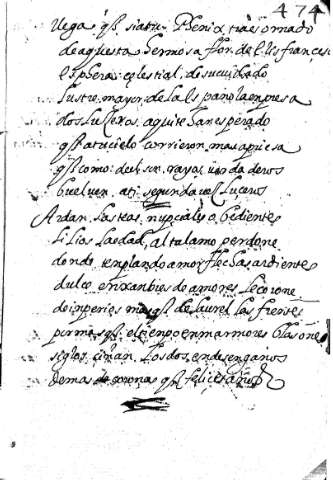 474
llega q̃ si a tu Phenix tras ornado
de aquesta hermosa flor de lis frances
esphera celestial, de su cuidado
lustre mayor de la española empresa
dos luceros aqui te han esperado
q̃ a tu cielo corrieron mas apriesa
q̃ como del sol rayos verdaderos
buelven a ti segunda vez luceros
Ardan las teas nupciales, obedientes
Lilios la edad, al talamo perdone
donde templando amor flechas ardientes
dulce enxanbre de amores le corone
de inperios mas q̃ de laurel las frentes
permas q̃ el tienpo en marmores blasone
siglos ciñan los dos, en desengaños
de mas coronas q̃ felices años